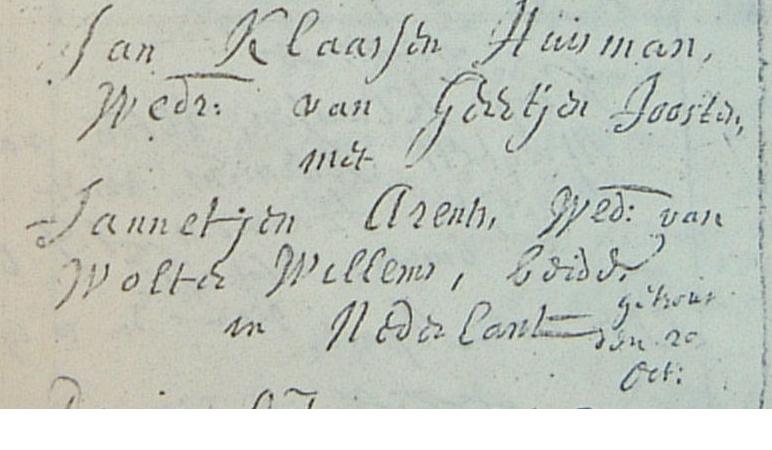 Jan Klaassen Huisman,
Wedr: van Geertjen Joosten,
met
Jannetjen Arents, Wed: van
Wolter Willems, beide
in Nederlant
getrout
den 20
Oct: